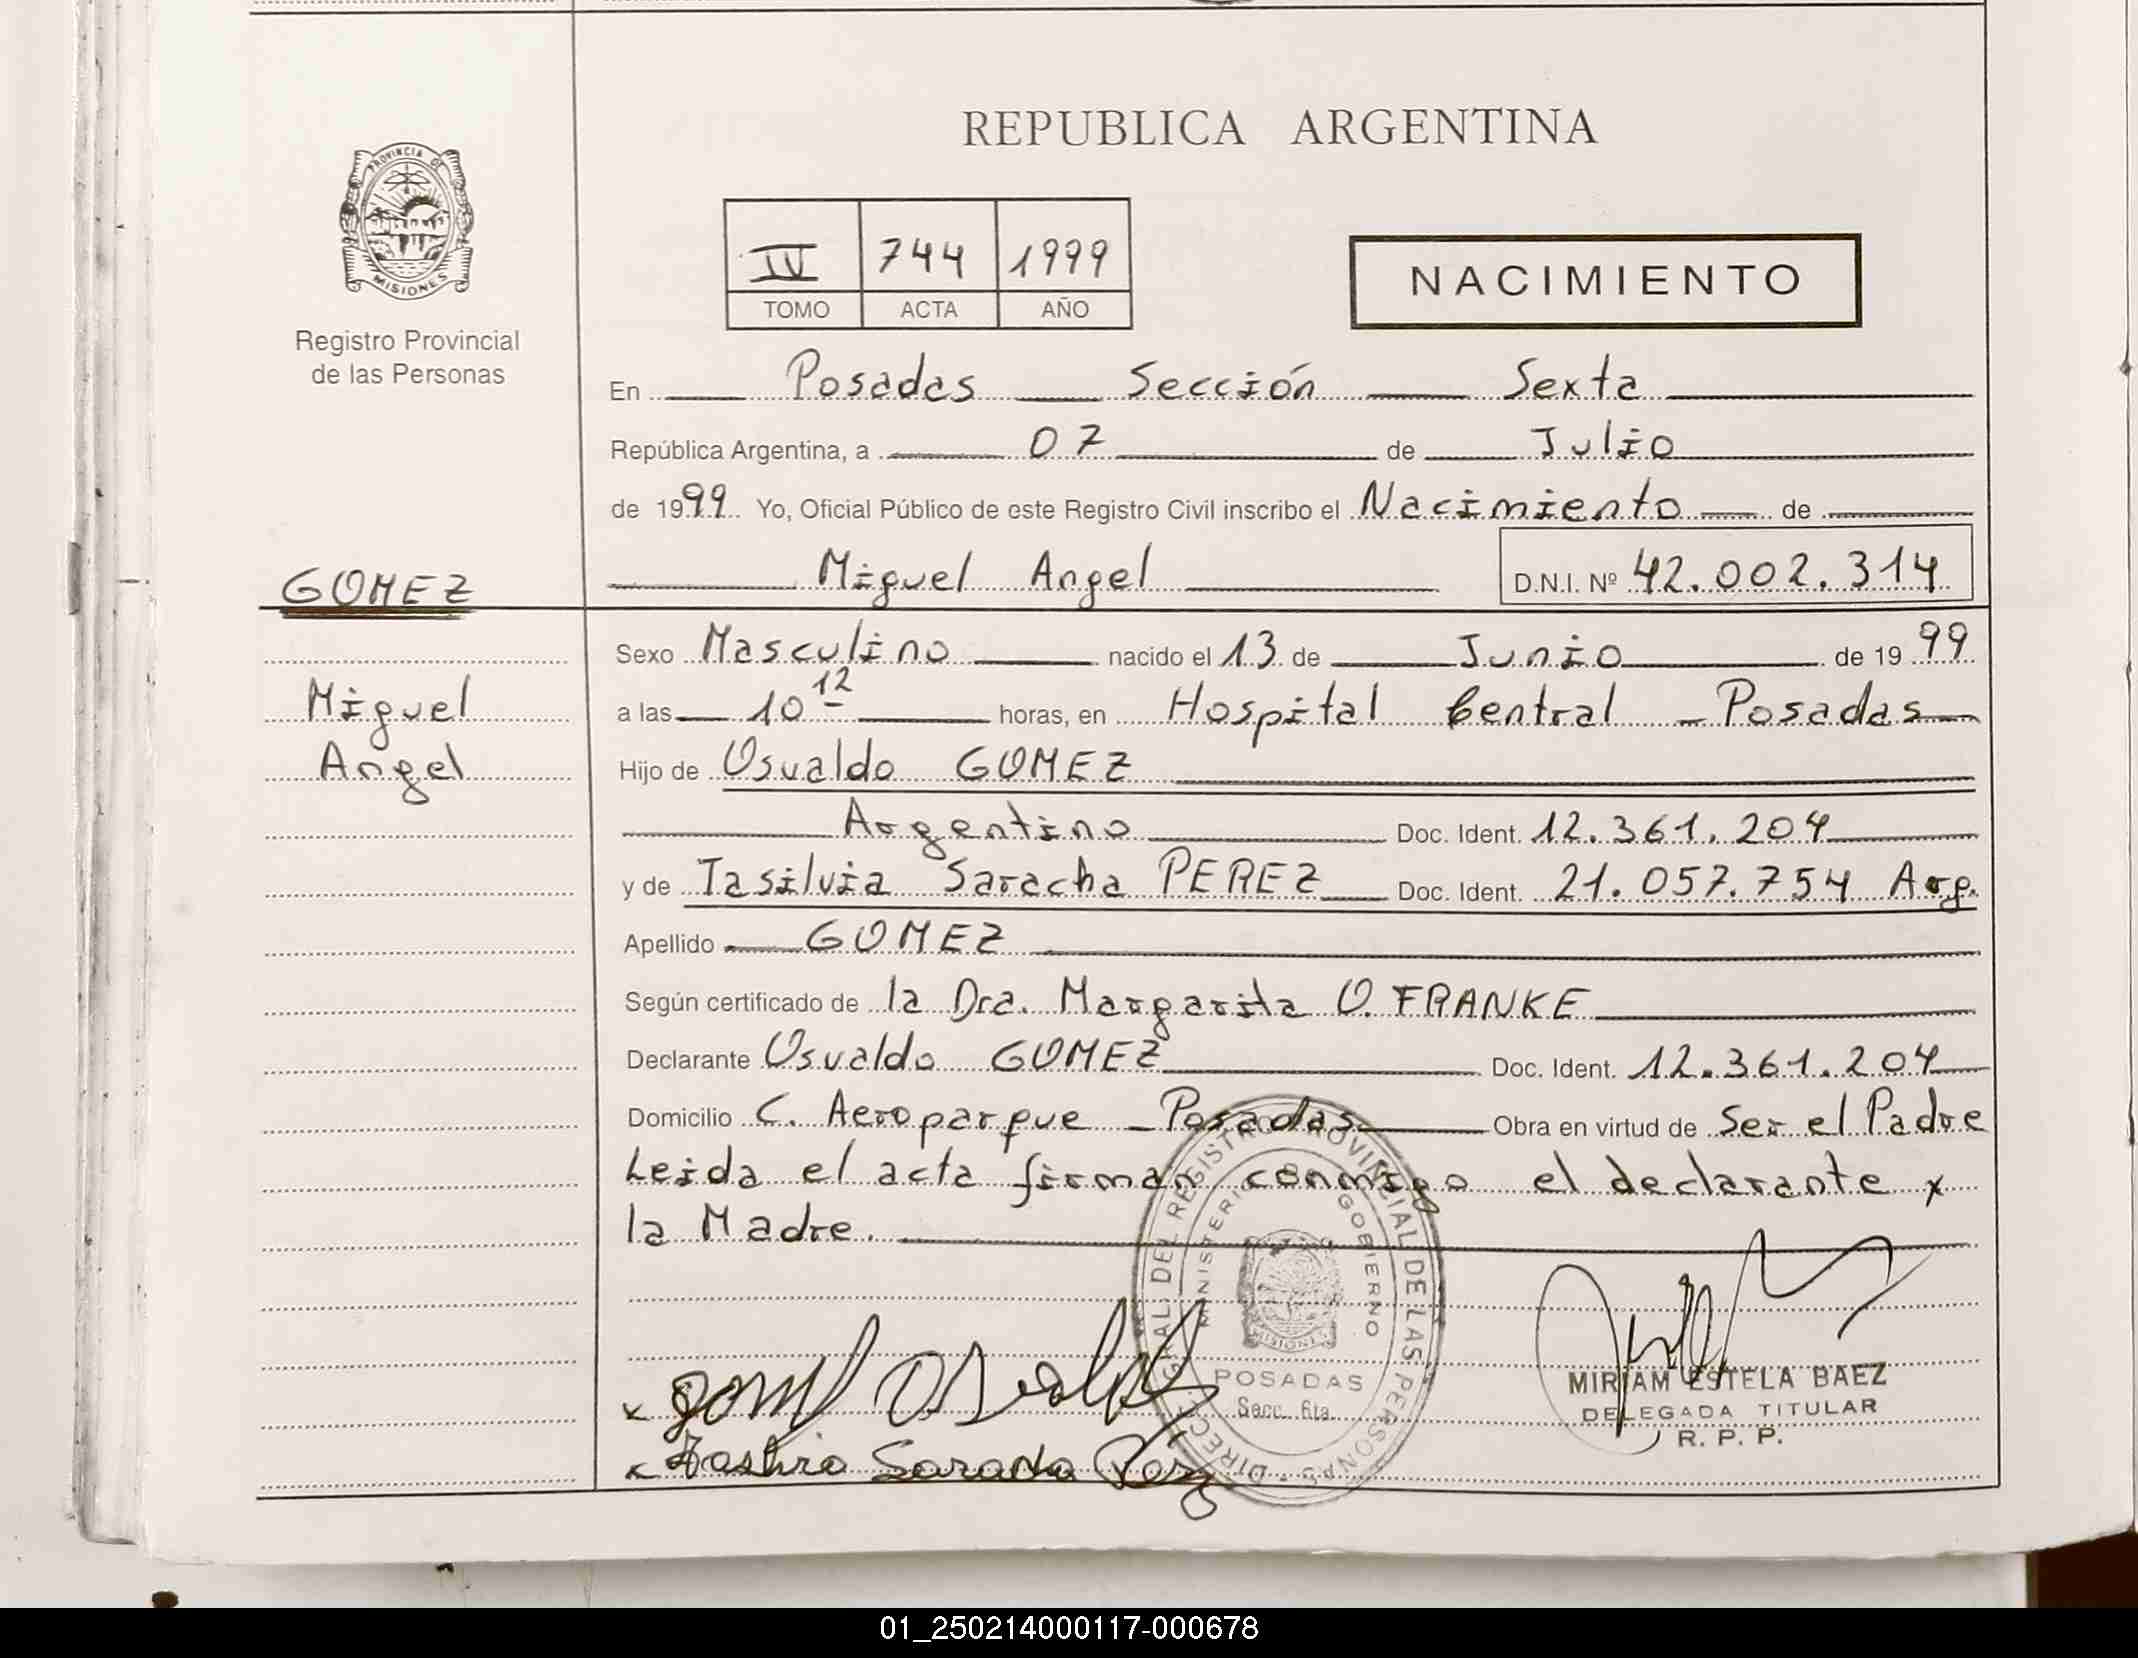 REPUBLICA ARGENTINA
PROVINCIA DE MISIONES
Registro Provincial
de las Personas
IV 744 1999
TOMO ACTA AÑO
NACIMIENTO
En Posadas Sección Sexta
República Argentina, a 07 de Julio
de 1999 Yo, Oficial Público de este Registro Civil inscribo el Nacimiento de
GOMEZ
Miguel Angel D.N.I. Nº 42.002.314
Sexo Masculino nacido el 13 de Junio de 1999
Miguel
a las 10 12 horas, en Hospital Central - Posadas
Angel
Hijo de Osvaldo GOMEZ
Argentino Doc. Ident. 12.361.204
y de Tasilvia Saracha PEREZ Doc. Ident. 21.057.754 Arg.
Apellido GOMEZ
Según certificado de la Dra. Margarita O. FRANKE
Declarante Osvaldo GOMEZ Doc. Ident. 12.361.204
Domicilio C. Aeroparque - Posadas Obra en virtud de Ser el Padre
Leida el acta firman conmigo el declarante x
la Madre.
DIRECC. GRAL. DEL REGISTRO PROVINCIAL DE LAS PERSONAS
MINISTERIO DE GOBIERNO
POSADAS
Secc. 6ta.
MIRIAM ESTELA BAEZ
DELEGADA TITULAR
R. P. P.
01_250214000117-000678